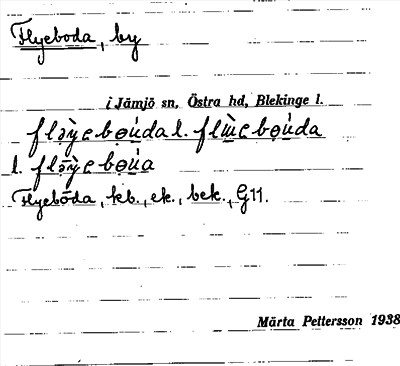 Flyeboda, by
i Jämjö sn, Östra hd, Blekinge l.
flə̣ỳebọu̇da l. flɯ̀ebọu̇da
l. flə̣ỳebọu̇a
Flyebōda, kb., ek., bek., G11.
Märta Pettersson 1938